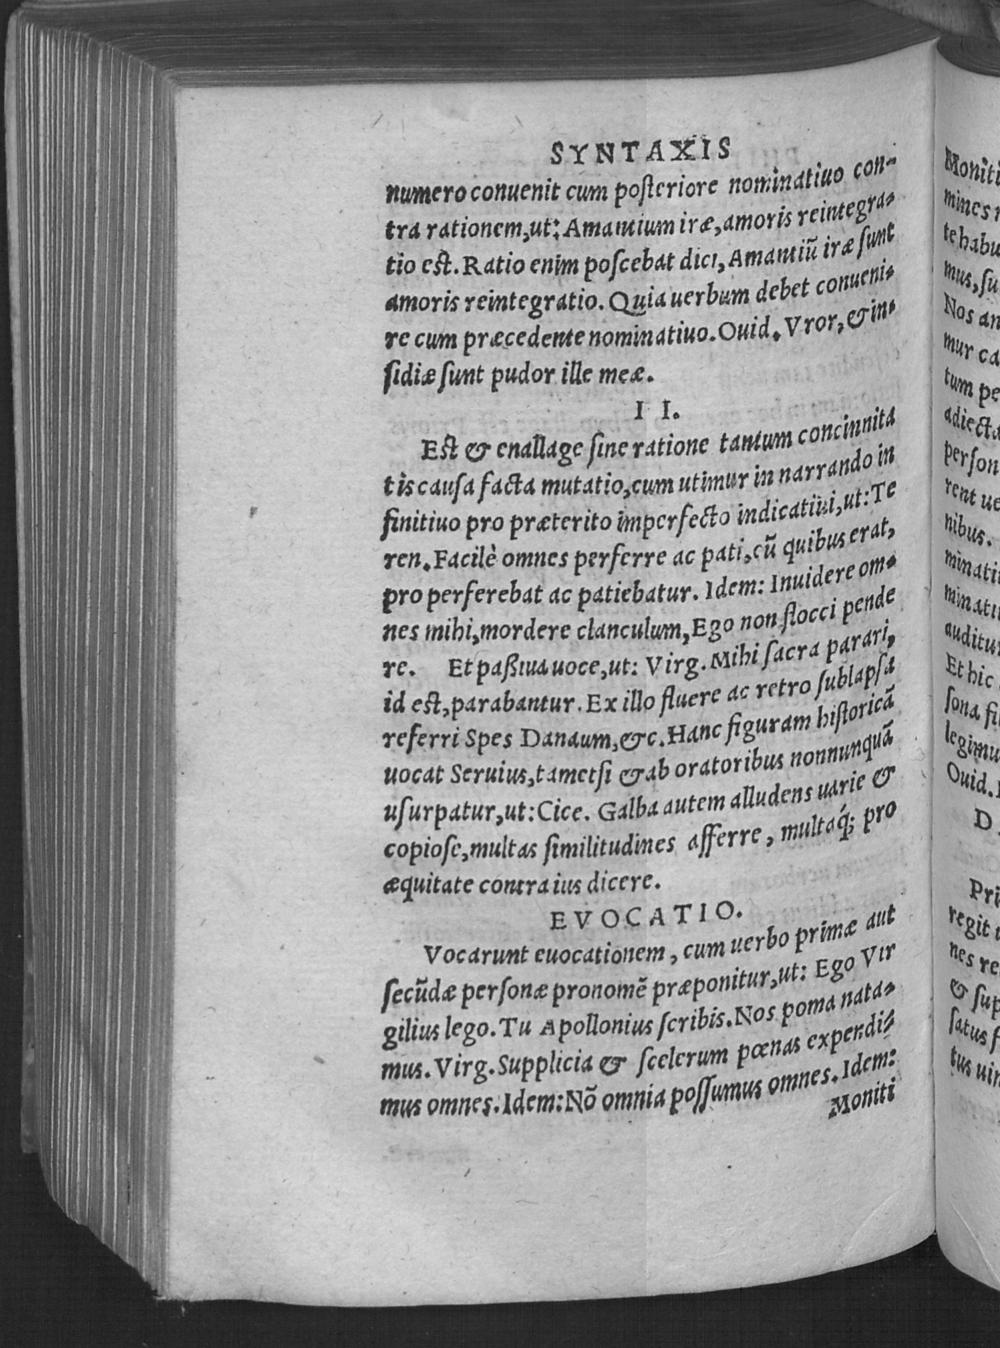 SYNTAXIS
numero conuenit cum posteriore nominatiuo con-
tra rationem, ut: Amantium iræ, amoris reintegra-
tio est. Ratio enim poscebat dici, Amantiũ iræ sunt
amoris reintegratio. Quia uerbum debet conueni-
re cum præcedente nominatiuo. Ouid. Vror, & in-
sidiæ sunt pudor ille meæ.
I I.
Est & enallage sine ratione tantum concinnita
tis causa facta mutatio, cum utimur in narrando in
finitiuo pro præterito imperfecto indicatiui, ut: Te
ren. Facilè omnes perferre ac pati, cũ quibus erat,
pro perferebat ac patiebatur. Idem: Inuidere om-
nes mihi, mordere clanculum, Ego non flocci pende
re. Et paßiua uoce, ut: Virg. Mihi sacra parari,
id est, parabantur. Ex illo fluere ac retro sublapsa
referri Spes Danaum, &c. Hanc figuram historicã
uocat Seruius, tametsi & ab oratoribus nonnunquã
usurpatur, ut: Cice. Galba autem alludens uarie &
copiose, multas similitudines afferre, multaq́; pro
æquitate contra ius dicere.
EVOCATIO.
Vocarunt euocationem, cum uerbo primæ aut
secũdæ personæ pronomẽ præponitur, ut: Ego Vir
gilius lego. Tu Apollonius scribis. Nos poma nata-
mus. Virg. Supplicia & scelerum pœnas expendi-
mus omnes. Idem: Nõ omnia possumus omnes. Idem:
Moniti
Moniti
mines
te habu
mus, su
Nos an
mur ca
tum pe
adiecta
person
rent ue
nibus.
minati
minatu
auditur
Et hic
sona fi
legimu
Ouid.
D.
Pri
regit
nes re
& sup
satus f
tus uir